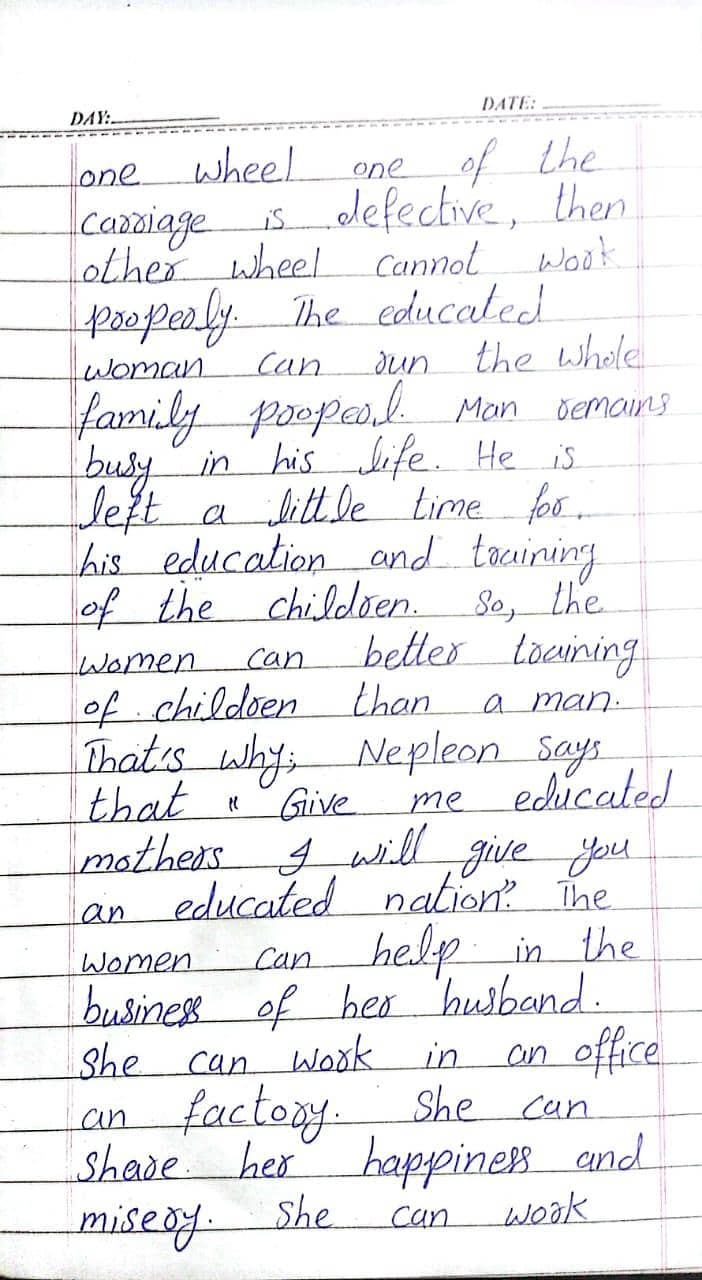 DAY:
DATE:
one wheel one of the
carriage is defective, then
other wheel cannot work
properly. The educated
woman can run the whole
family properl. Man remains
busy in his life. He is
left a little time for.
his education and training
of the children. So, the
women can better training
of children than a man.
That's why; Nepleon says
that " Give me educated
mothers I will give you
an educated nation". The
women can help in the
business of her husband.
She can work in an office
an factory. She can
Share her happiness and
misery. She can work